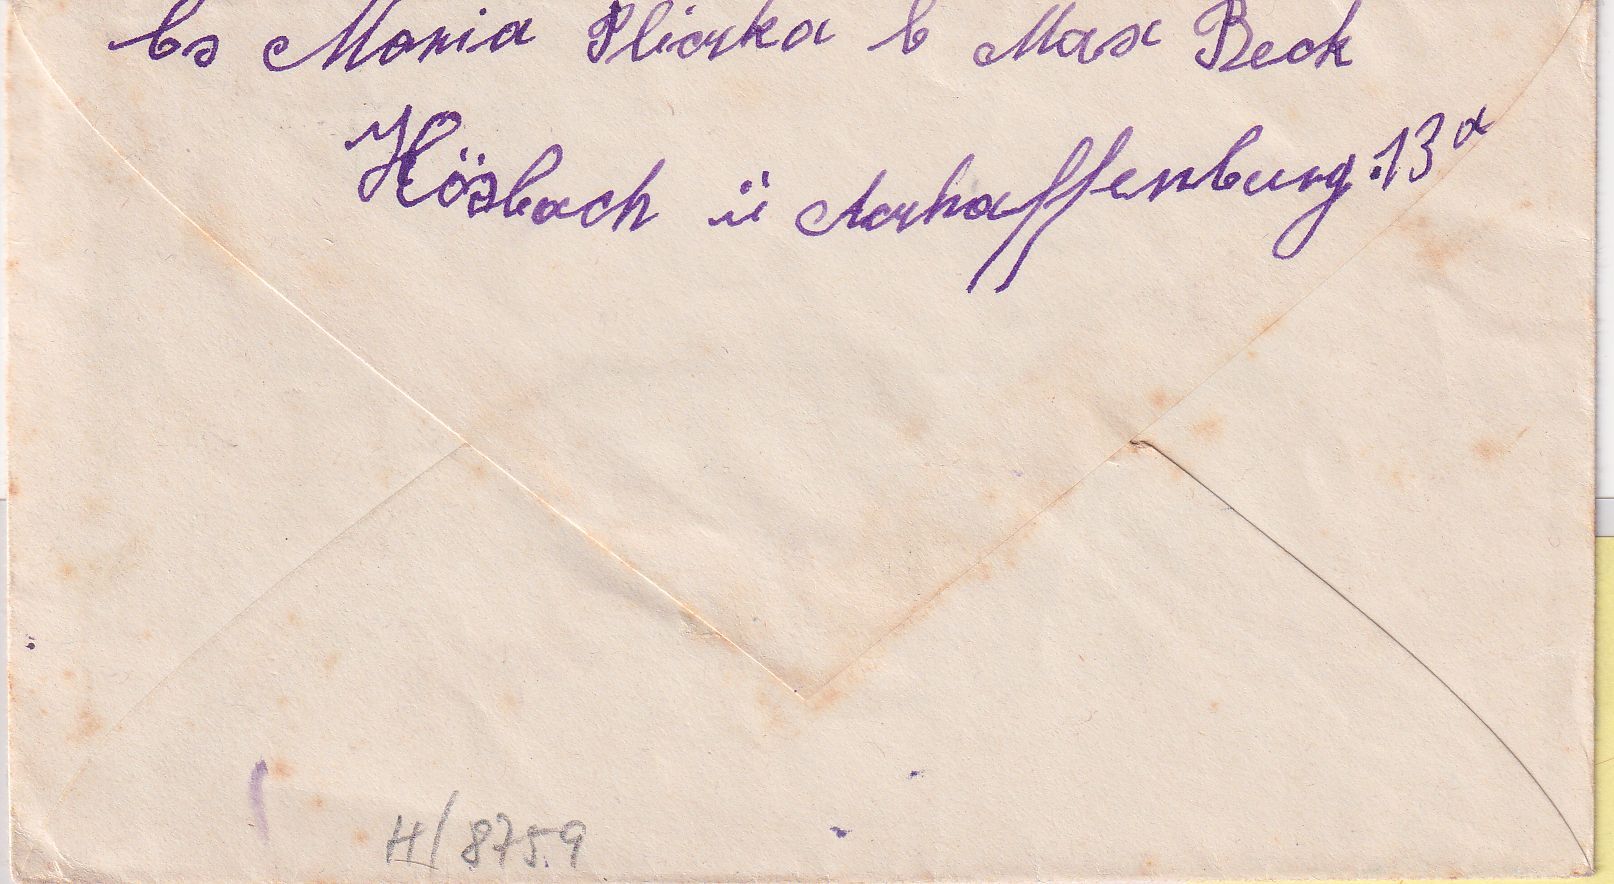 bs Maria Pliczka b Max Beck
Hösbach ü Aschaffenburg. 13a
H/8759